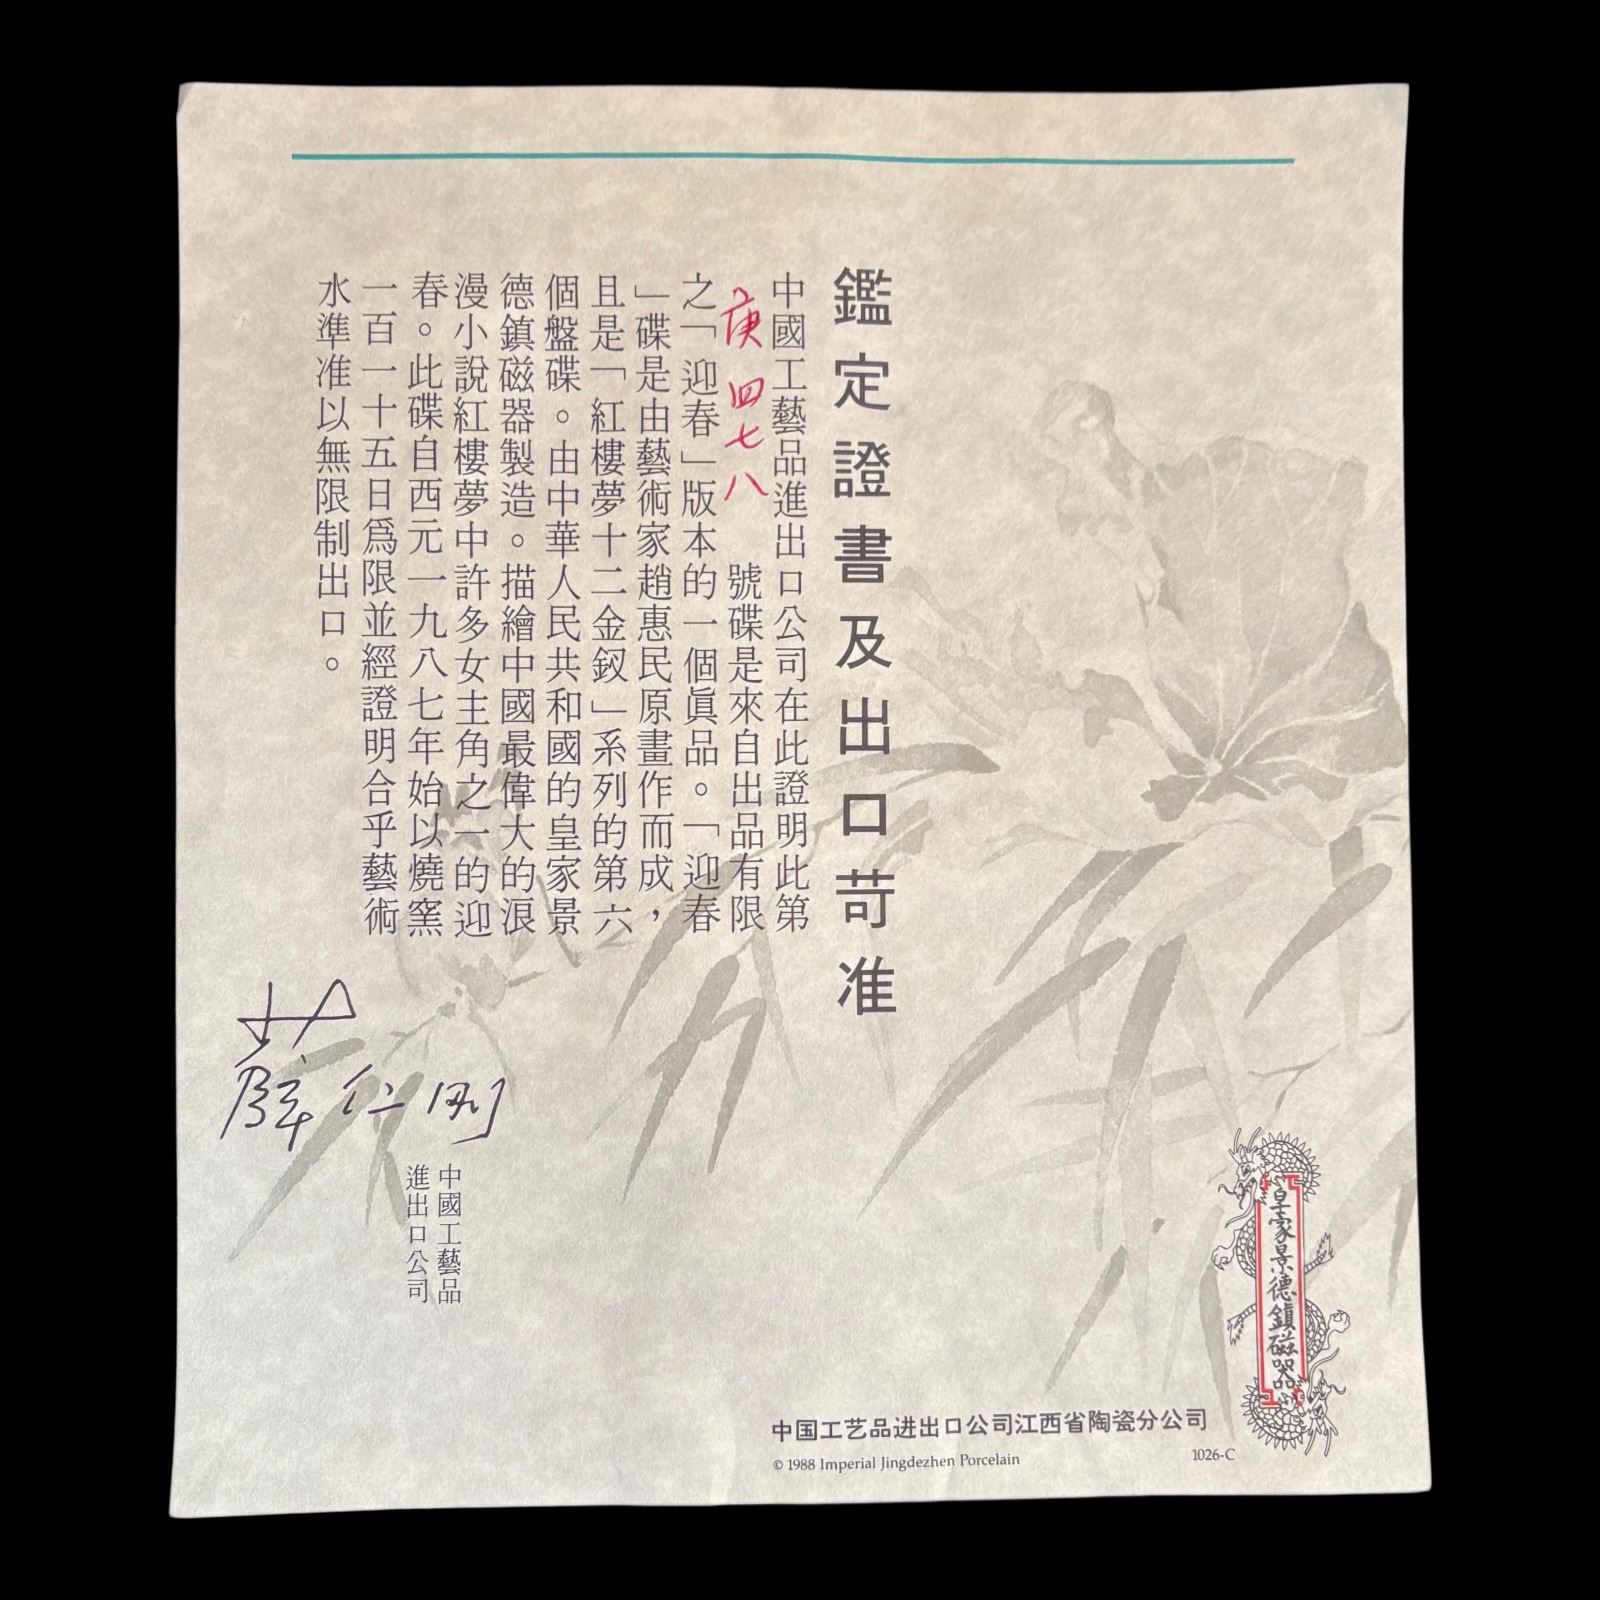 鑑定證書及出口苛准
中國工藝品進出口公司在此證明此第
庚四七八 號碟是來自出品有限
之「迎春」版本的一個眞品。「迎春
」碟是由藝術家趙惠民原畫作而成，
且是「紅樓夢十二金釵」系列的第六
個盤碟。由中華人民共和國的皇家景
德鎮磁器製造。描繪中國最偉大的浪
漫小說紅樓夢中許多女主角之一的迎
春。此碟自西元一九八七年始以燒窰
一百一十五日爲限並經證明合乎藝術
水準准以無限制出口。
薛仁刚
中國工藝品
進出口公司
皇家景德鎮磁器
中国工艺品进出口公司江西省陶瓷分公司
© 1988 Imperial Jingdezhen Porcelain
1026-C